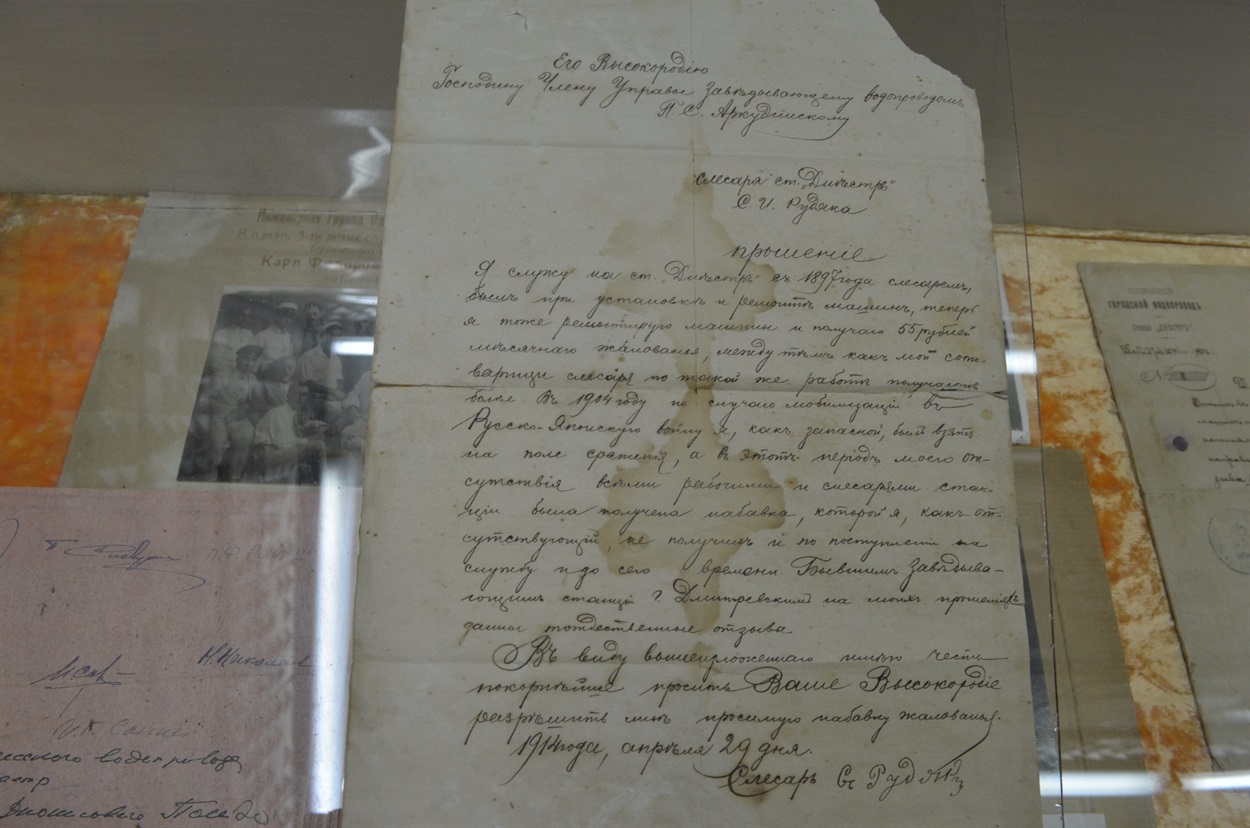 Его Высокородію
Господину Члену Управы Завѣдывающему водопроводомъ
П. С. Аркудинскому
Слесаря ст. „Днѣстръ"
С. И. Рудяка
прошеніе
Я служу на ст. „Днѣстръ" съ 1897 года слесаремъ,
былъ при установкѣ и ремонтѣ машинъ, теперь
я тоже ремонтирую машины и получаю 55 рублей
мѣсячнаго жалованья, между тѣмъ какъ мои сото-
варищи слесаря по такой же работѣ получаютъ
болѣе. Въ 1904 году по случаю мобилизаціи въ
Русско-Японскую войну я, какъ запасной, былъ взятъ
на поле сраженія, а въ этотъ періодъ моего от-
сутствія всѣми рабочими и слесарями стан-
ціи была получена набавка, которой я, какъ от-
сутствующій, не получилъ и по поступленіи на
службу и до сего времени. Бывшимъ Завѣдыва-
ющимъ станціи Г. Дмитревскимъ на моихъ прошеніяхъ
даны тождественные отзывы
Въ виду вышеизложеннаго имѣю честь
покорнѣйше просить Ваше Высокородіе
разрѣшить мнѣ просимую набавку жалованья.
1914 года, апрѣля 29 дня.
Слесарь С. Рудякъ
Инженерная группа
Карл
ГОРОДСКОЙ ВОДОПРОВОДЪ
№
Н. Николаев
водопровода